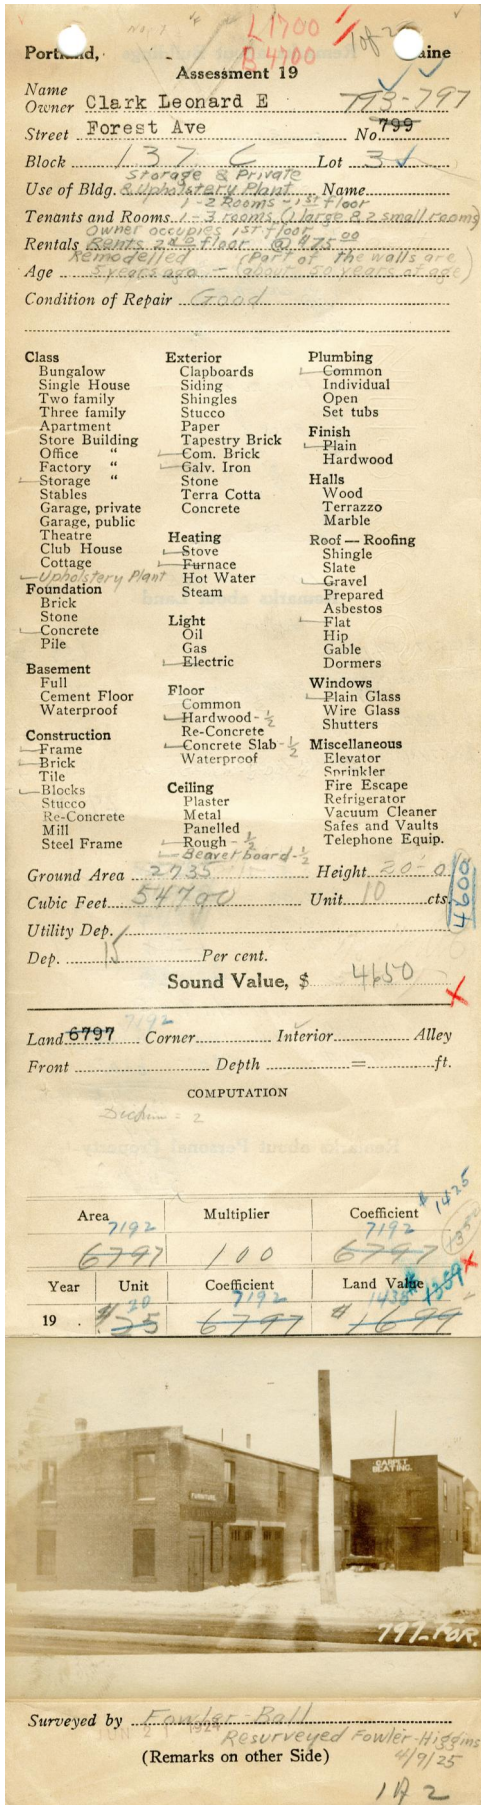 No. 7
L 1700
B 4700
1 of 2
Portland, Maine
Assessment 19
Name
Owner Clark Leonard E 793-797
Street Forest Ave No. 799
Block 137 C Lot 3
Storage & Private
Use of Bldg. & Upholstery Plant Name
1-2 Rooms - 1st floor
Tenants and Rooms 1-3 rooms (1 large & 2 small rooms)
Owner occupies 1st floor
Rentals Rents 2nd floor @ $75.00
Remodelled (Part of the walls are
Age 5 years ago - about 50 years of age)
Condition of Repair Good
Class
Bungalow
Single House
Two family
Three family
Apartment
Store Building
Office "
Factory "
Storage "
Stables
Garage, private
Garage, public
Theatre
Club House
Cottage
Upholstery Plant
Foundation
Brick
Stone
Concrete
Pile
Basement
Full
Cement Floor
Waterproof
Construction
Frame
Brick
Tile
Blocks
Stucco
Re-Concrete
Mill
Steel Frame
Exterior
Clapboards
Siding
Shingles
Stucco
Paper
Tapestry Brick
Com. Brick
Galv. Iron
Stone
Terra Cotta
Concrete
Heating
Stove
Furnace
Hot Water
Steam
Light
Oil
Gas
Electric
Floor
Common
Hardwood - ½
Re-Concrete
Concrete Slab - ½
Waterproof
Ceiling
Plaster
Metal
Panelled
Rough - ½
Beaver board - ½
Plumbing
Common
Individual
Open
Set tubs
Finish
Plain
Hardwood
Halls
Wood
Terrazzo
Marble
Roof — Roofing
Shingle
Slate
Gravel
Prepared
Asbestos
Flat
Hip
Gable
Dormers
Windows
Plain Glass
Wire Glass
Shutters
Miscellaneous
Elevator
Sprinkler
Fire Escape
Refrigerator
Vacuum Cleaner
Safes and Vaults
Telephone Equip.
Ground Area 2735 Height 20-0
Cubic Feet 54700 Unit 10 cts.
4600
Utility Dep.
Dep. 15 Per cent.
Sound Value, $ 4650
7192
Land 6797 Corner Interior Alley
Front Depth = ft.
COMPUTATION
Area Multiplier Coefficient
$1425
7192 7192
1350
6797 100 6797
Year Unit Coefficient Land Value
$1359
20 7192 1438
19 $25 6797 $1699
CARPET
BEATING.
FURNITURE
797-FOR.
Surveyed by Fowler-Ball
Resurveyed Fowler-Higgins
4/9/25
(Remarks on other Side)
1 of 2